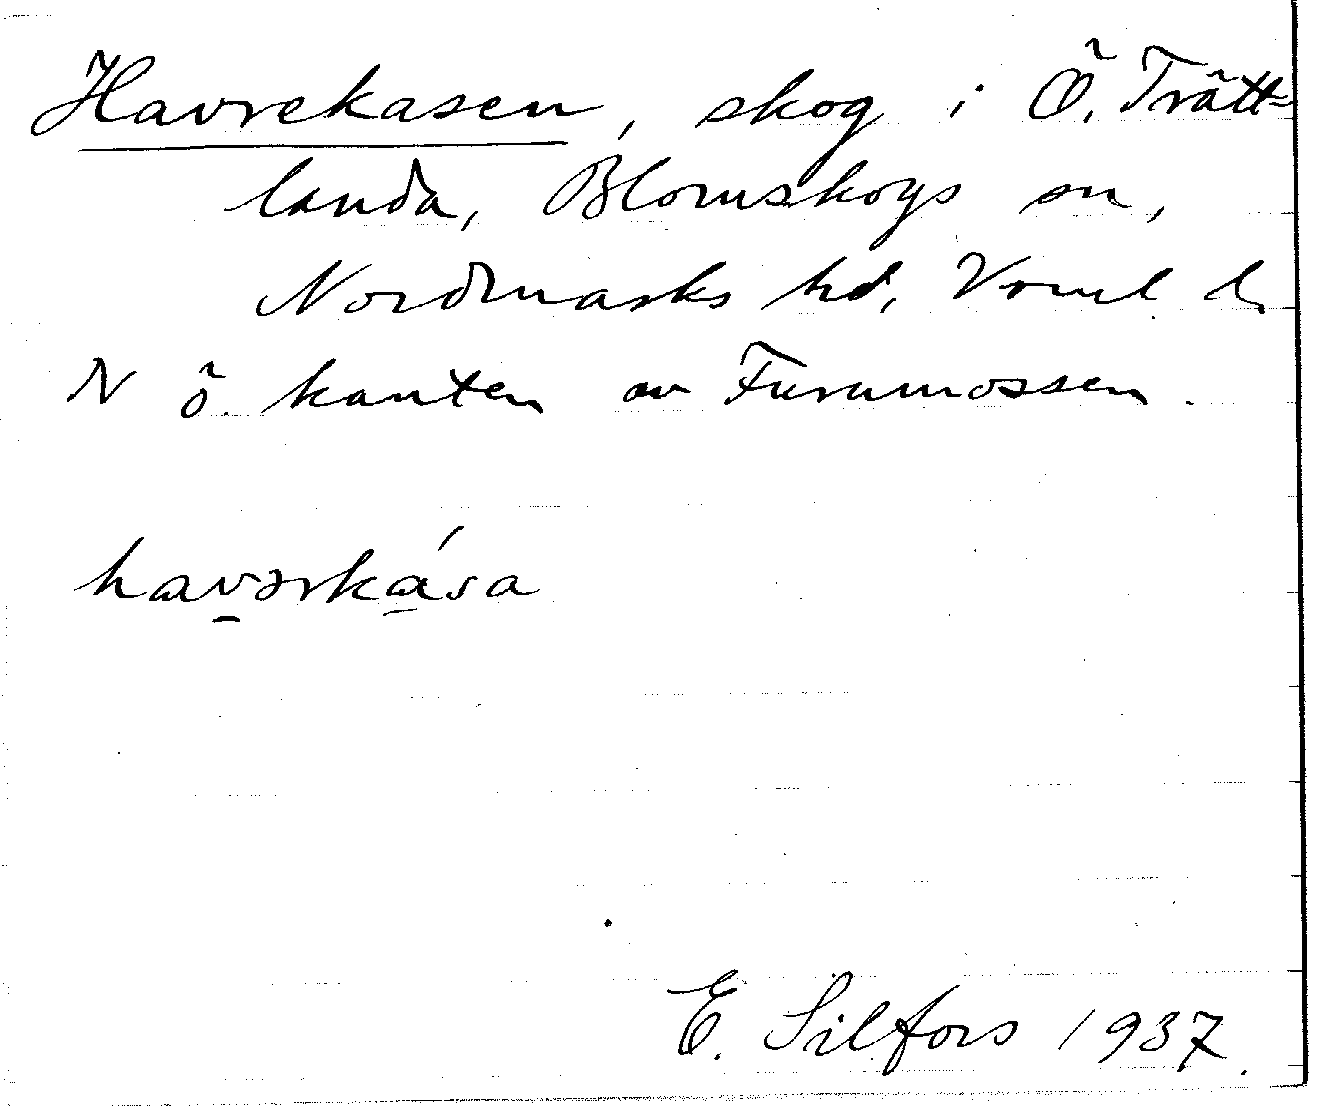 Havrekasen, skog i Ö. Trätt-
landa, Blomskogs sn,
Nordmarks hd, Vrml d.
N ö kanten av Furumossen.
havərkása
E. Silfors 1937.